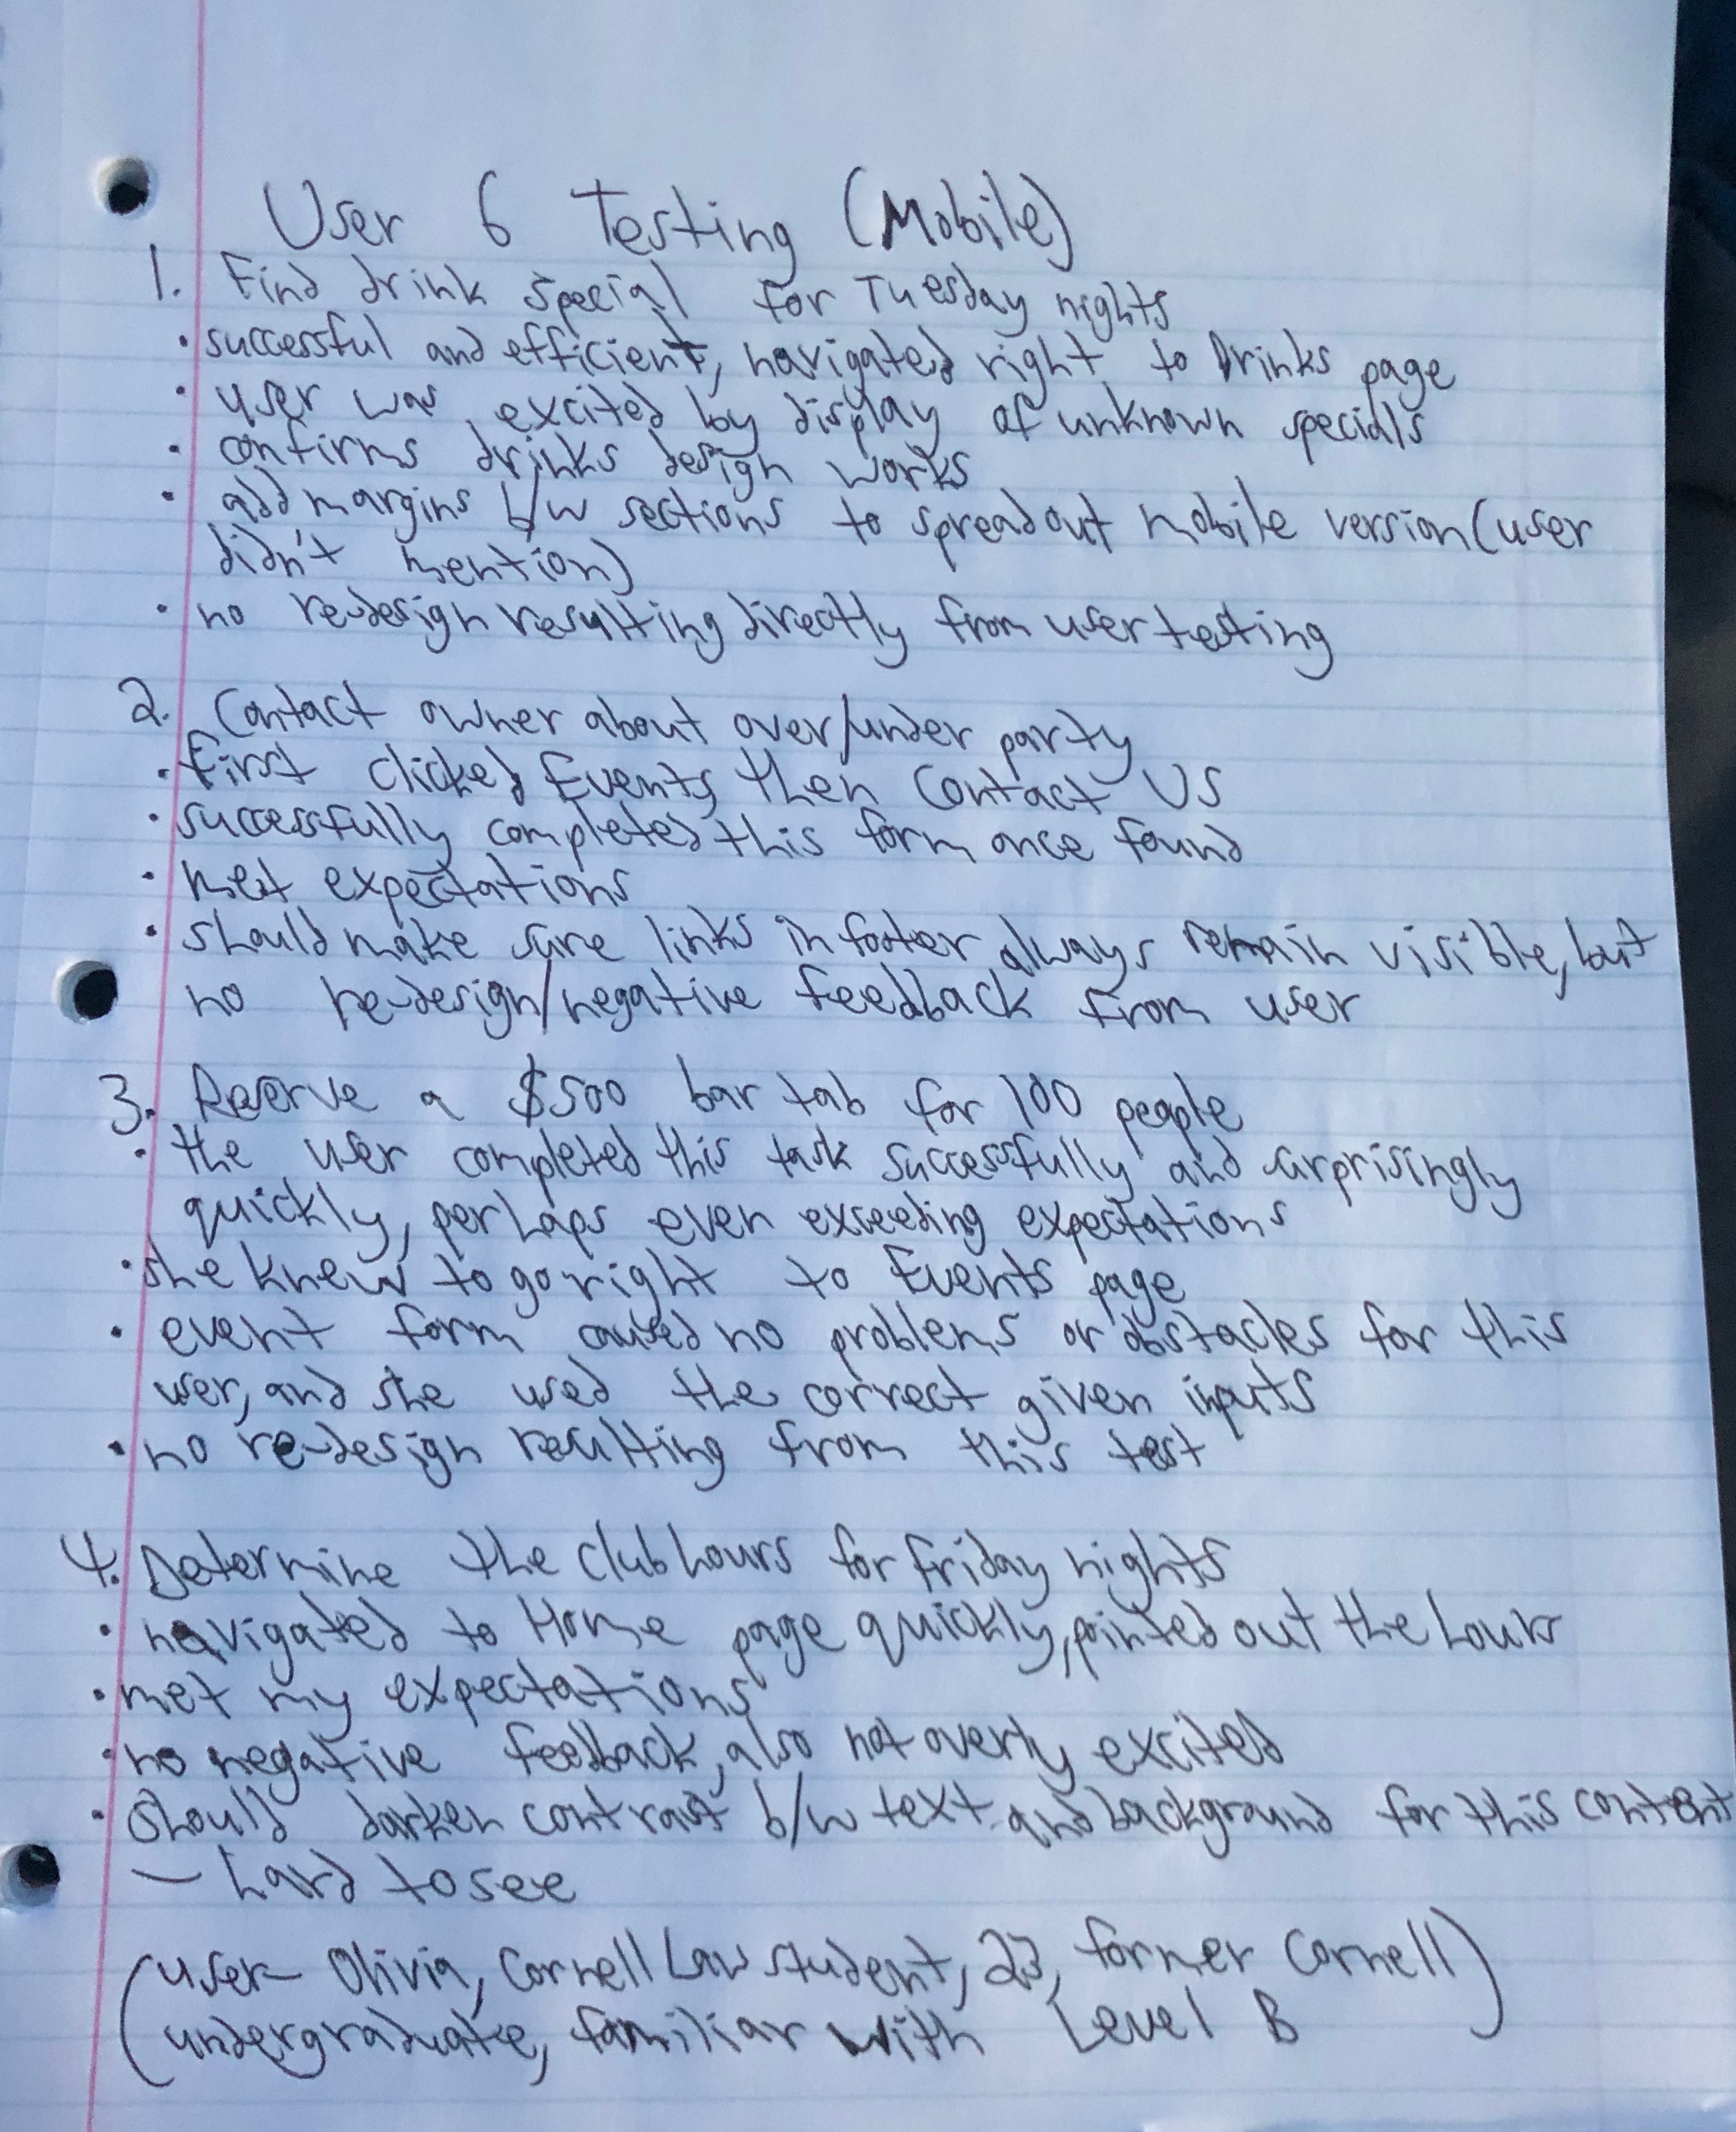 User 6 Testing (Mobile)
1. Find drink special for Tuesday nights
• successful and efficient, navigated right to Drinks page
• user was excited by display of unknown specials
• confirms drinks design works
• add margins b/w sections to spread out mobile version (user
didn't mention)
• no re-design resulting directly from user testing
2. Contact owner about over/under party
• First clicked Events then Contact Us
• successfully completed this form once found
• met expectations
• should make sure links in footer always remain visible, but
no re-design/negative feedback from user
3. Reserve a $500 bar tab for 100 people
• the user completed this task successfully and surprisingly
quickly, perhaps even exceeding expectations
• she knew to go right to Events page
• event form caused no problems or obstacles for this
user, and she used the correct given inputs
• no re-design resulting from this test
4. Determine the club hours for Friday nights
• navigated to Home page quickly, pointed out the hours
• met my expectations
• no negative feedback, also not overly excited
• should darken contrast b/w text and background for this content
— hard to see
(user - Olivia, Cornell Law student, 23, former Cornell)
(undergraduate, familiar with Level B